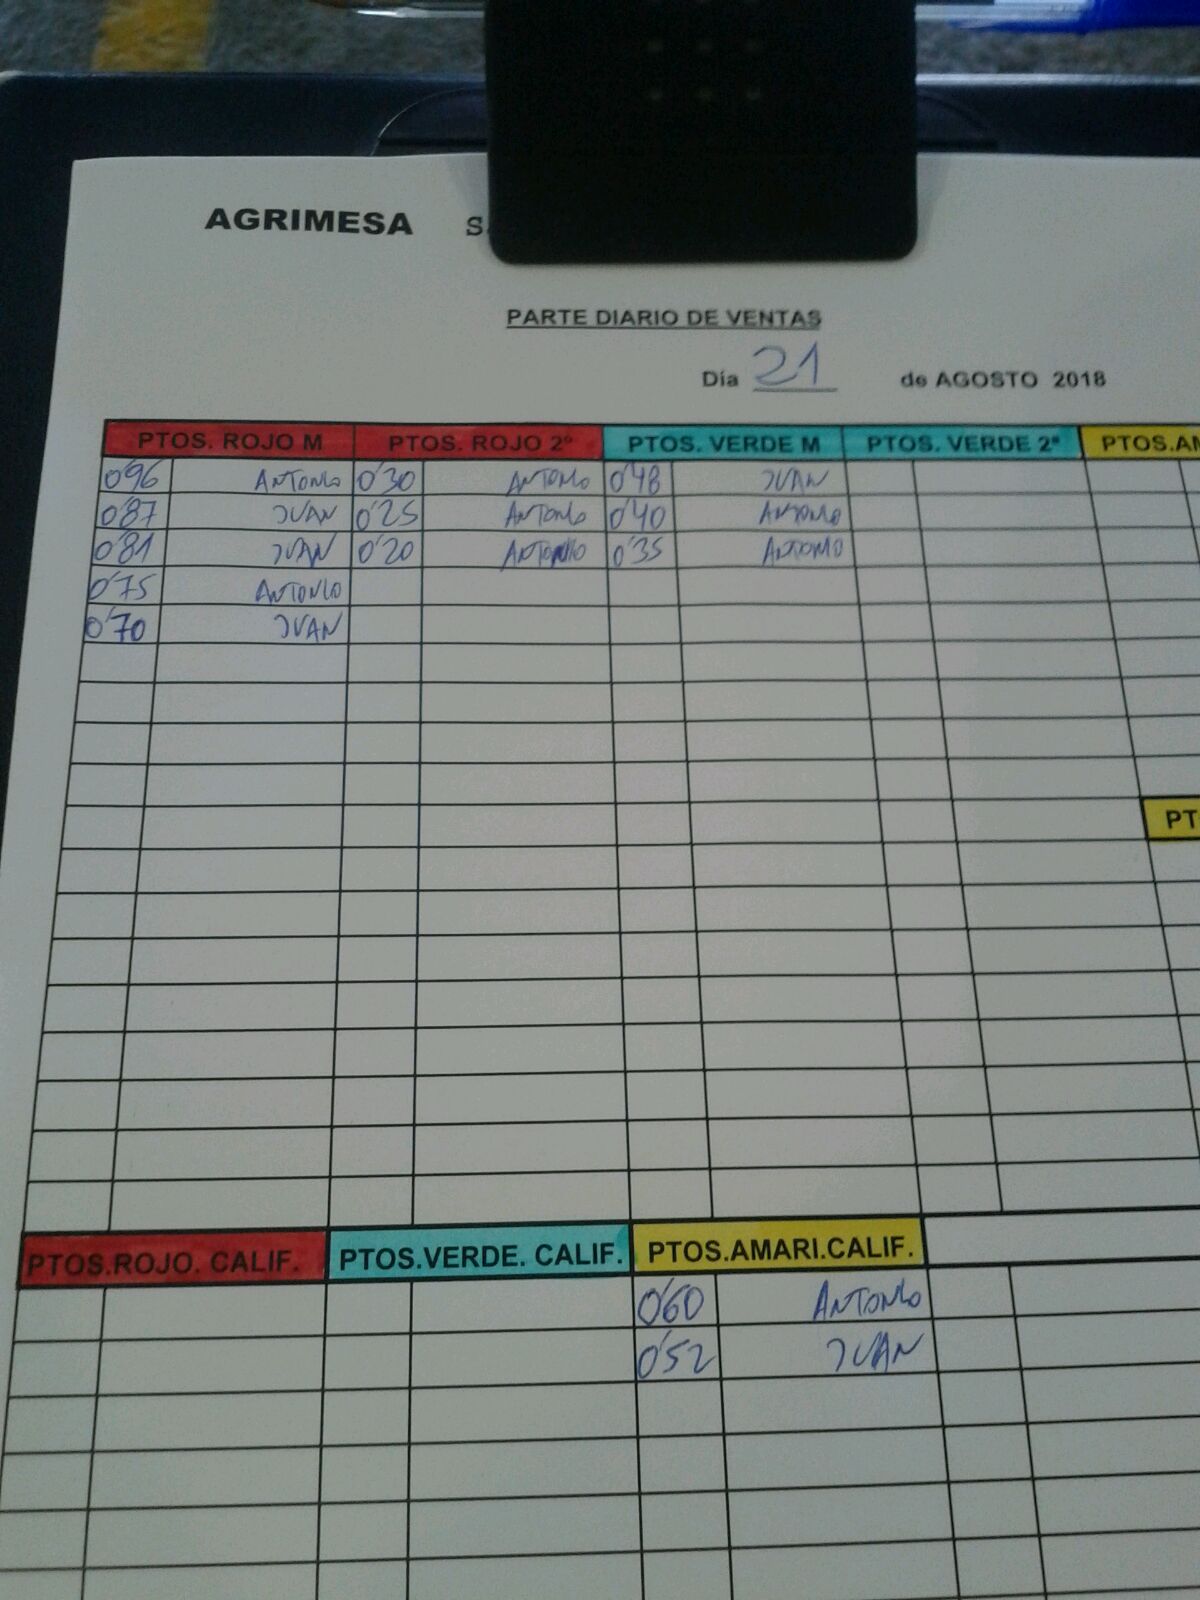 AGRIMESA S
PARTE DIARIO DE VENTAS
Día 21 de AGOSTO 2018
PTOS. ROJO M PTOS. ROJO 2º PTOS. VERDE M PTOS. VERDE 2ª PTOS.AM
0'96 ANTONIO 0'30 ANTONIO 0'48 JUAN
0'87 JUAN 0'25 ANTONIO 0'40 ANTONIO
0'81 JUAN 0'20 ANTONIO 0'35 ANTONIO
0'75 ANTONIO
0'70 JUAN
PT
PTOS.ROJO. CALIF. PTOS.VERDE. CALIF. PTOS.AMARI.CALIF.
0'60 ANTONIO
0'52 JUAN